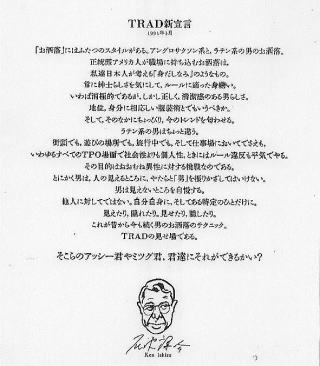 TRAD新宣言
1991年3月
「お洒落」にはふたつのスタイルがある。アングロサクソン系と、ラテン系の男のお洒落。
正統派アメリカ人が職場に持ち込むお洒落は、
私達日本人が考える「身だしなみ」のようなもの。
常に紳士らしさを気にして、ルールに適った身繕い。
いわば消極的であるが、しかし正しく、清潔感のある男らしさ。
地位、身分に相応しい服装術とでもいうべきか。
そして、そのなかにちょっぴり、今のトレンドを匂わせる。
ラテン系の男はちょっと違う。
街頭でも、遊びの場所でも、旅行中でも、そして仕事場においてでさえも、
いわゆるすべてのTPO場面で社会性よりも個人性、ときにはルール違反も平気でやる。
その目的はおおむね異性に対する挑戦なのである。
とにかく男は、人の見えるところに、やたらと「男」を振りかざしてはいけない。
男は見えないところを自慢する。
他人に対してではない。自分自身に、そしてある特定のひとだけに。
見えたり、隠れたり。見せたり、隠したり。
これが昔から今も続く男のお洒落のテクニック。
TRADの見せ場である。
そこらのアッシー君やミツグ君、君達にそれができるかい?
Ken Ishizu